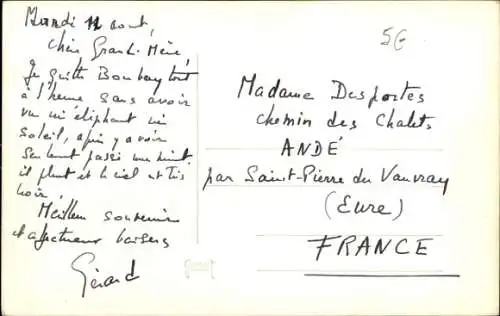 Mardi 11 août,
Chère Grand-Mère
Je quitte Bombay tout
à l'heure sans avoir
vu un éléphant ni
soleil, après y avoir
seulement passé une nuit.
il pleut et le ciel est très
noir.
Meilleur souvenir
et affectueux baisers
Gérard
5E
Madame Desportes
chemin des Chalets
ANDÉ
par Saint-Pierre du Vauvray
(Eure)
FRANCE